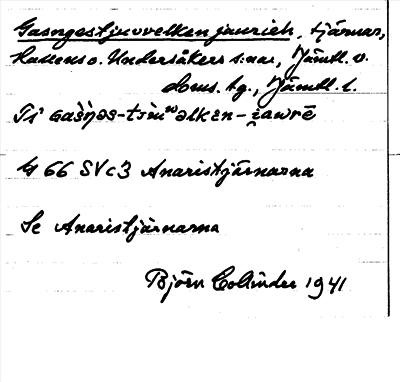 Gasngestjuvvelken jaurieh, tjärnar,
Hallens o. Undersåkers s:nar, Jämtl. v.
doms. tg., Jämtl. l.
G 66 SV c 3 Anaristjärnarna
Se Anaristjärnarna
Björn Collinder 1941